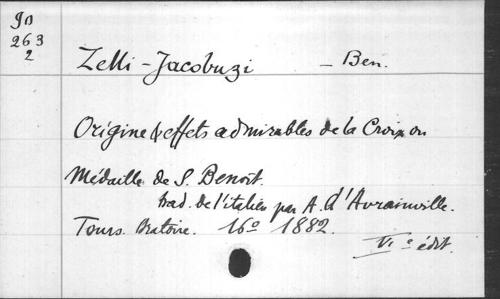 90
263
2
Zelli-Jacobuzi - Ben.
Origine & effets admirables de la Croix ou
Médaille de S. Benoit.
trad. de l'italien par A. d'Avrainville.
Tours. Oratoire. 16° 1882.
VIe édit.